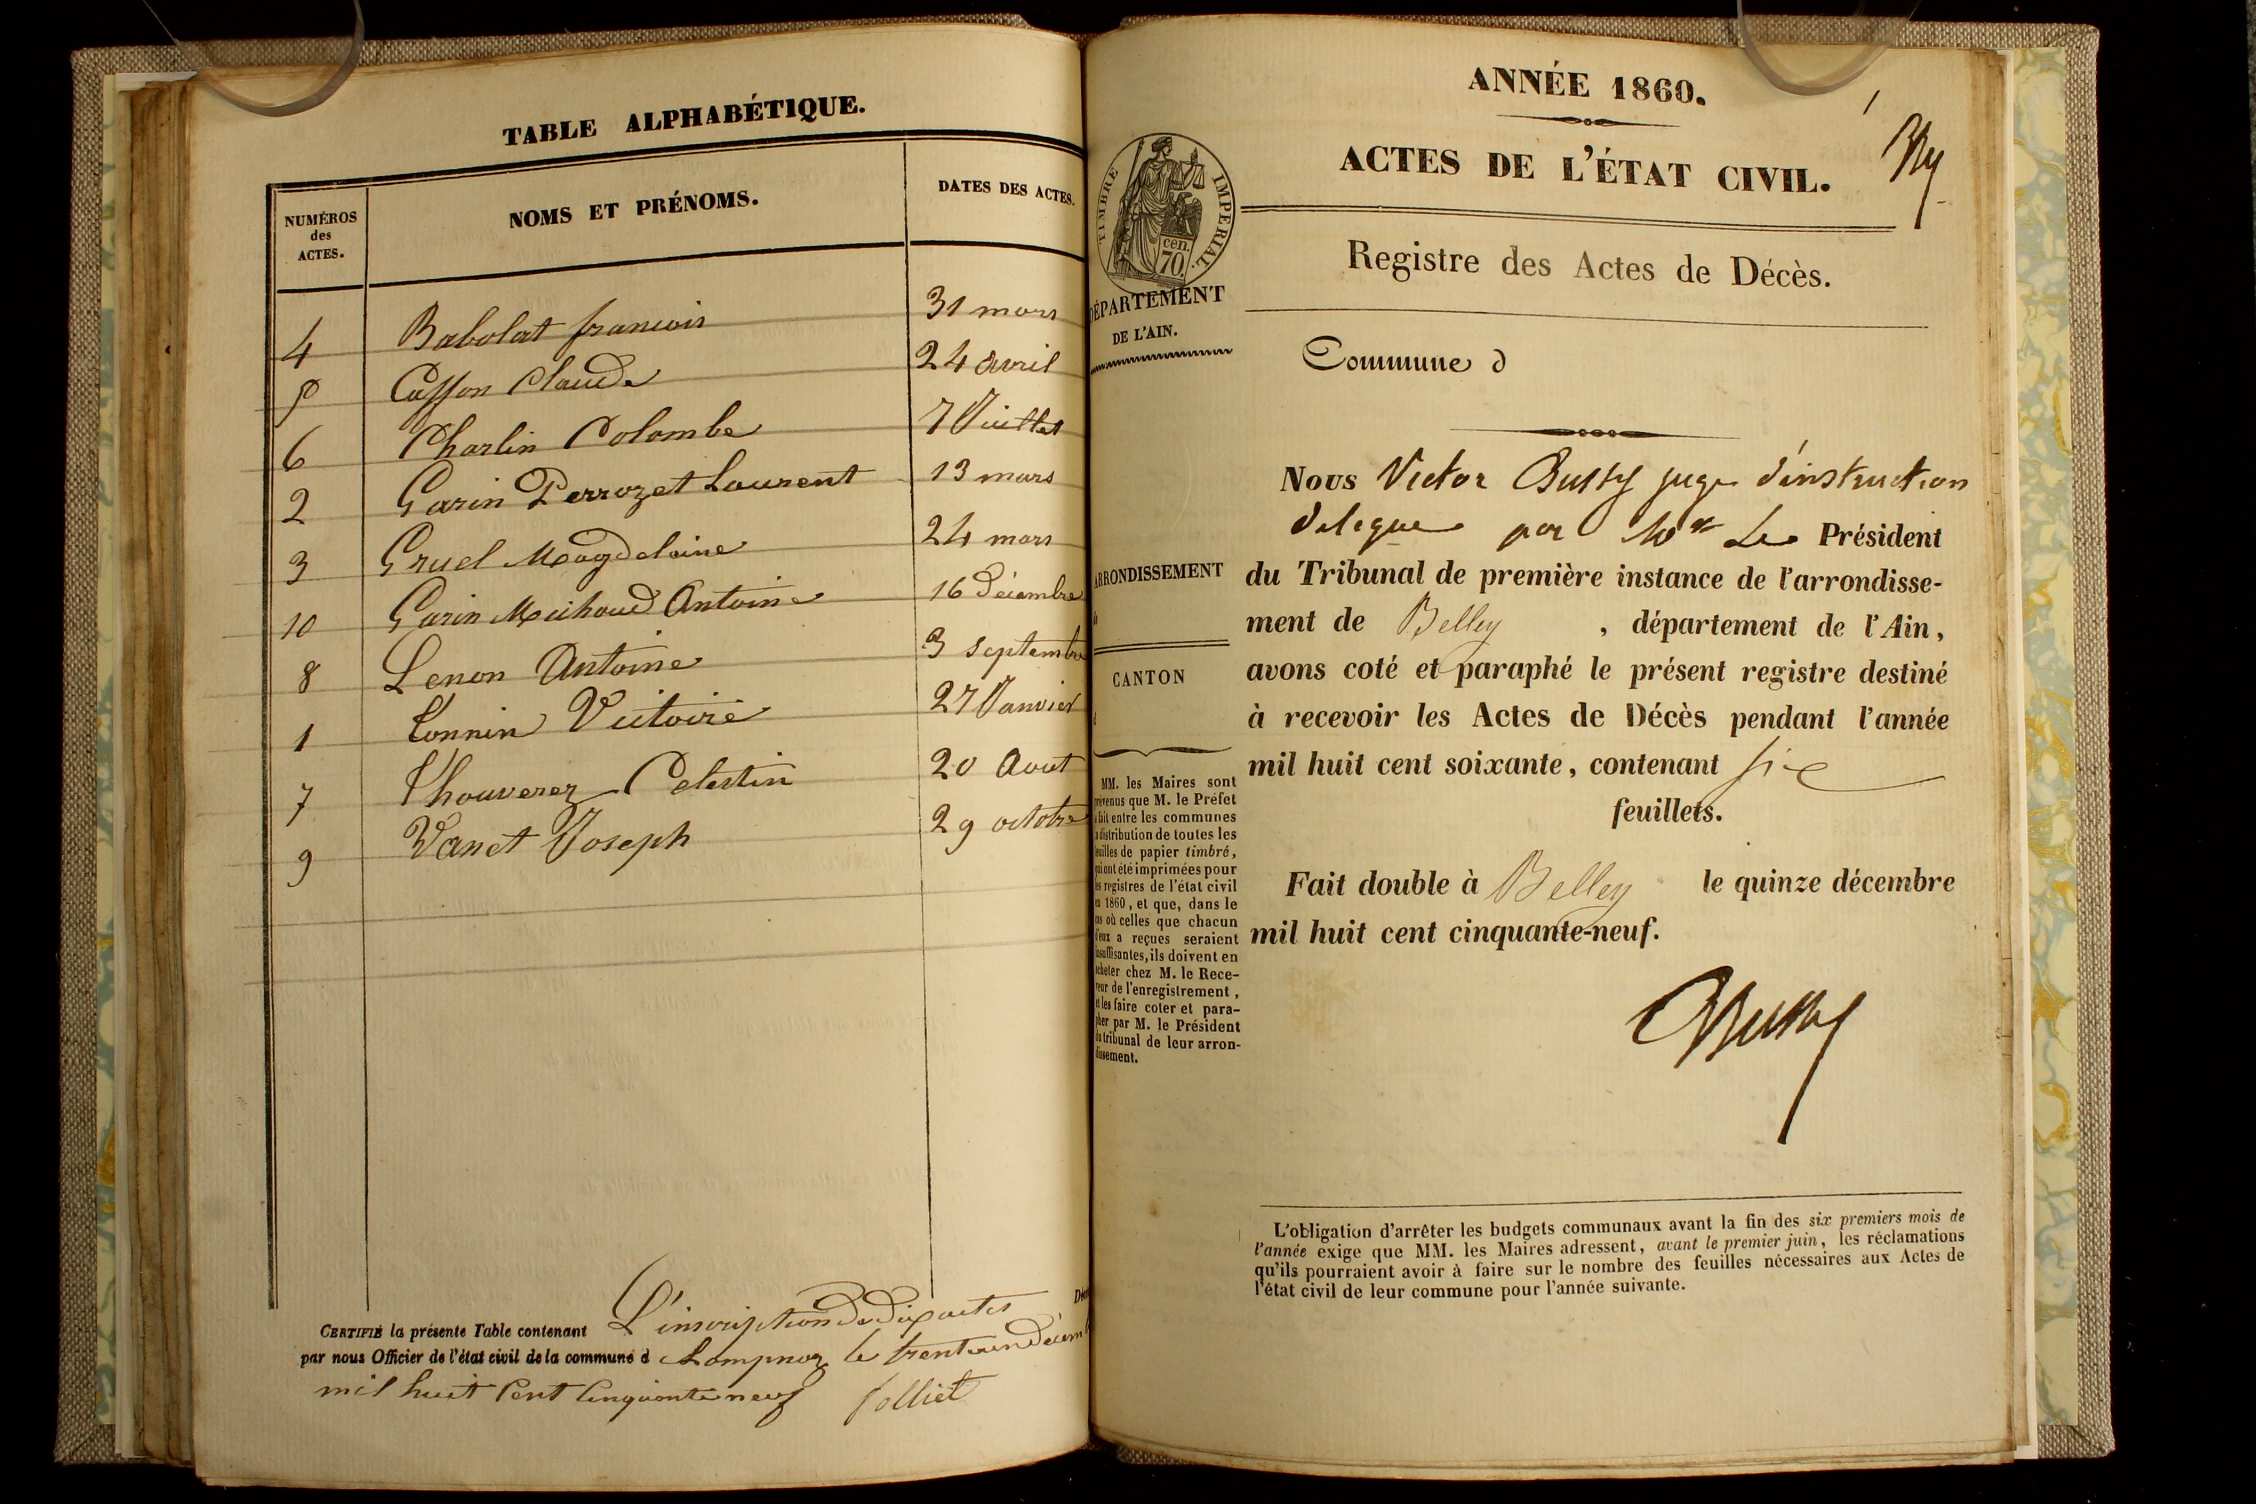 TABLE ALPHABÉTIQUE.
NUMÉROS
des
ACTES.
NOMS ET PRÉNOMS.
DATES DES ACTES.
4 Babolat francois 31 mars
5 Casson Claude 24 avril
6 Charlin Colombe 7 Juillet
2 Garin Perrozet Laurent 13 mars
3 Gruel Magdelaine 24 mars
10 Garin Michoud Antoine 16 Décembre
8 Lenon Antoine 3 septembre
1 Tonnin Victoire 27 Janvier
7 Thouverez Celestin 20 Aout
9 Vanet Joseph 29 octobre
CERTIFIÉ la présente Table contenant L'inscription de dix actes
par nous Officier de l'état civil de la commune d Lompnaz le trente un Décemb
mil huit Cent Cinquante neuf Jolliet
ANNÉE 1860.
ACTES DE L'ÉTAT CIVIL.
TIMBRE IMPÉRIAL.
cen.
70.
DÉPARTEMENT
DE L'AIN.
Registre des Actes de Décès.
Commune d
Nous Victor Bussy juge d'instruction
délegue par Mr Le Président
du Tribunal de première instance de l'arrondisse-
ment de Belley, département de l'Ain,
avons coté et paraphé le présent registre destiné
à recevoir les Actes de Décès pendant l'année
mil huit cent soixante, contenant six
feuillets.
Fait double à Belley le quinze décembre
mil huit cent cinquante-neuf.
Bussy
ARRONDISSEMENT
CANTON
MM. les Maires sont
prévenus que M. le Préfet
a fait entre les communes
la distribution de toutes les
feuilles de papier timbré,
qui ont été imprimées pour
les registres de l'état civil
en 1860, et que, dans le
cas où celles que chacun
d'eux a reçues seraient
insuffisantes, ils doivent en
acheter chez M. le Rece-
veur de l'enregistrement,
et les faire coter et para-
pher par M. le Président
du tribunal de leur arron-
dissement.
L'obligation d'arrêter les budgets communaux avant la fin des six premiers mois de
l'année exige que MM. les Maires adressent, avant le premier juin, les réclamations
qu'ils pourraient avoir à faire sur le nombre des feuilles nécessaires aux Actes de
l'état civil de leur commune pour l'année suivante.